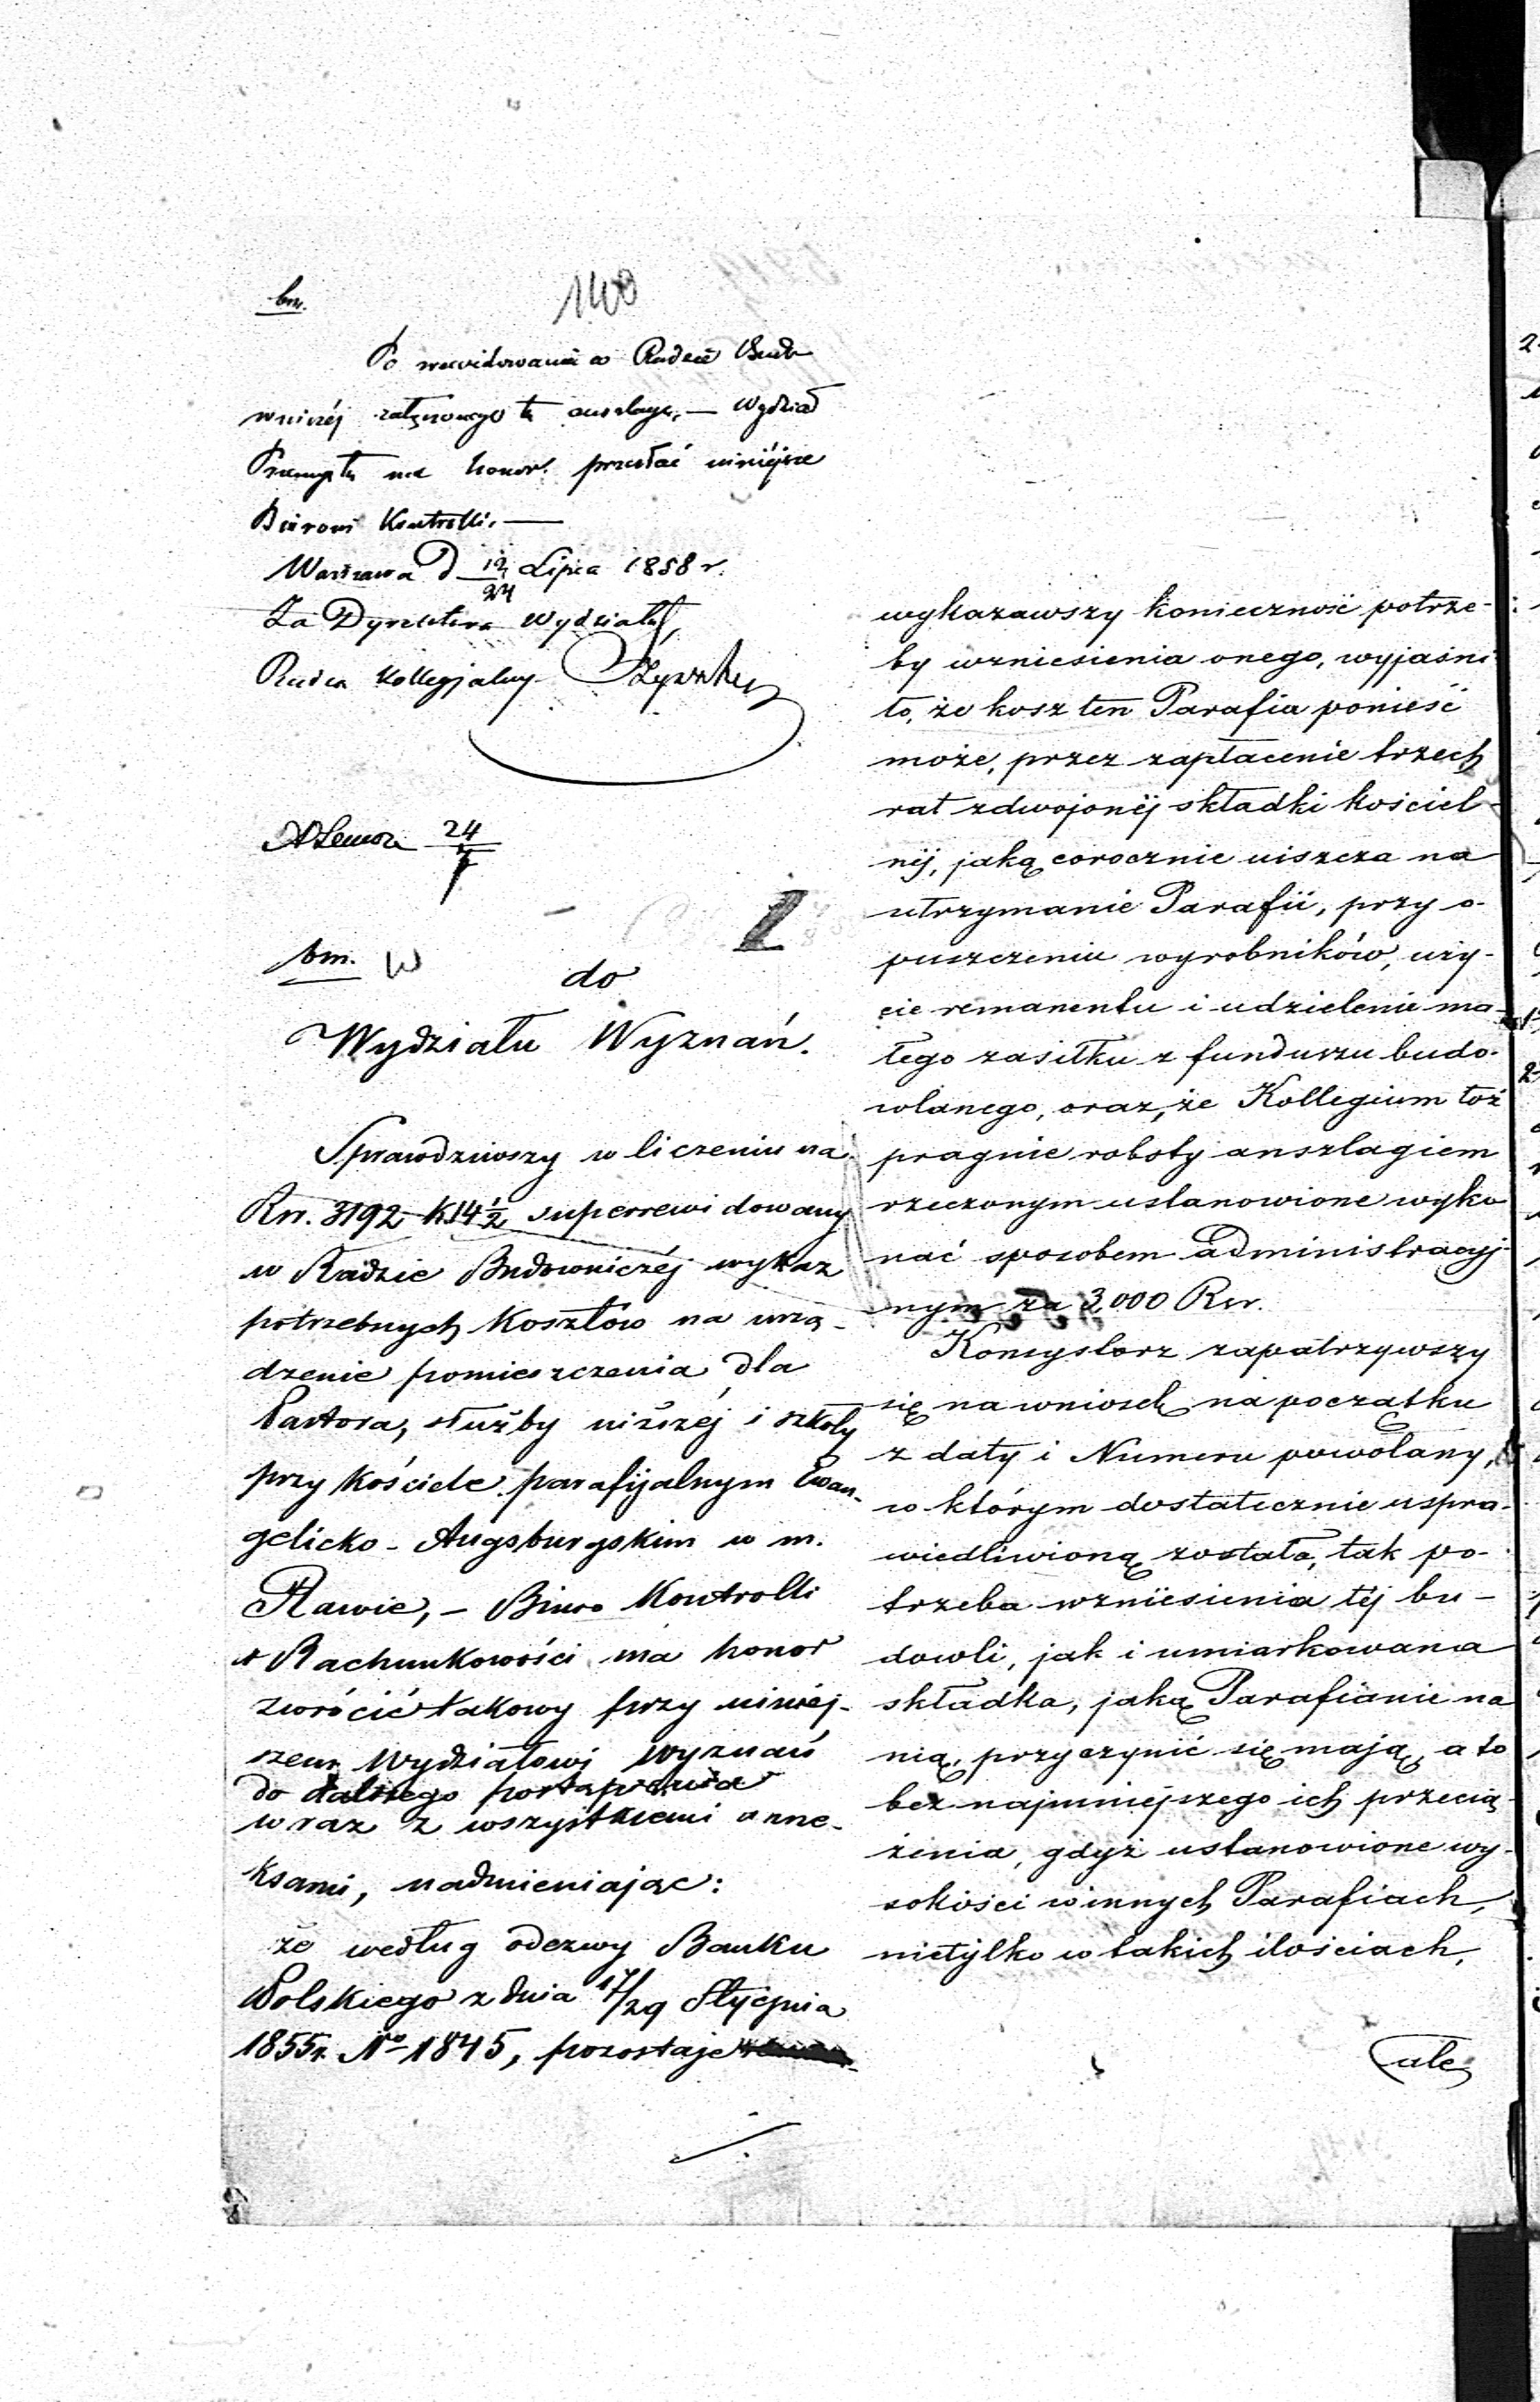 bm.
140
Po zrewidowaniu w Radzie Budo
wniczéj załączonego tu anszlagu, — Wydział
Przemysłu ma honor przesłać niniéjsze
Biórowi Kontrolli. —
Warszawa d 12/24 Lipca 1858 r.
Za Dyrektora Wydziału,
Radca Kollegjalny
24/7
bm. W
do
Wydziału Wyznań.
Sprawdziwszy w liczeniu na
Rsr. 3192 k14½ superrewidowany
w Radzie Budowniczéj wykaz
potrzebnych kosztów na urzą-
dzenie pomieszczenia dla
Pastora, służby niższéj i szkoły
przy kościele parafijalnym Ewan-
gelicko-Augsburgskim w m.
Rawie, – Biuro Kontrolli
i Rachunkowości ma honor
zwrócić takowy przy niniéj-
szem Wydziałowi Wyznań
do dalszego postąpienia
wraz z wszystkiemi anne-
ksami, nadmieniając:
że według odezwy Banku
Polskiego z dnia 17/29 Stycznia
1855r. No 1845, pozostaje
wykazawszy konieczność potrze-
by wzniesienia onego, wyjaśni
to, że koszten Parafia ponieść
może, przez zapłacenie trzech
rat zdwojonéj składki kościel-
néj, jaką corocznie uiszcza na
utrzymanie Parafii, przy o-
puszczeniu wyrobników, uży-
cie remanentu i udzieleniu ma-
łego zasiłku z funduszu budo-
wlanego, oraz, że Kollegium toż
pragnie roboty anszlagiem
rzeczonym ustanowione wyko
nać sposobem administracyj
nym za 3,000 Rsr.
Konsystorz zapatrzywszy
się na wniosek na początku
z daty i Numeru powołany,
w którym dostatecznie uspra-
wiedliwioną została, tak po-
trzeba wzniesienia téj bu-
dowli, jak i umiarkowana
składka, jaką Parafianie na
nią, przyczynić się mają, a to
bez najmniejszego ich przecią-
żenia, gdyż ustanowione wy-
sokości w innych Parafiach,
nietylko w takich ilościach,
ale